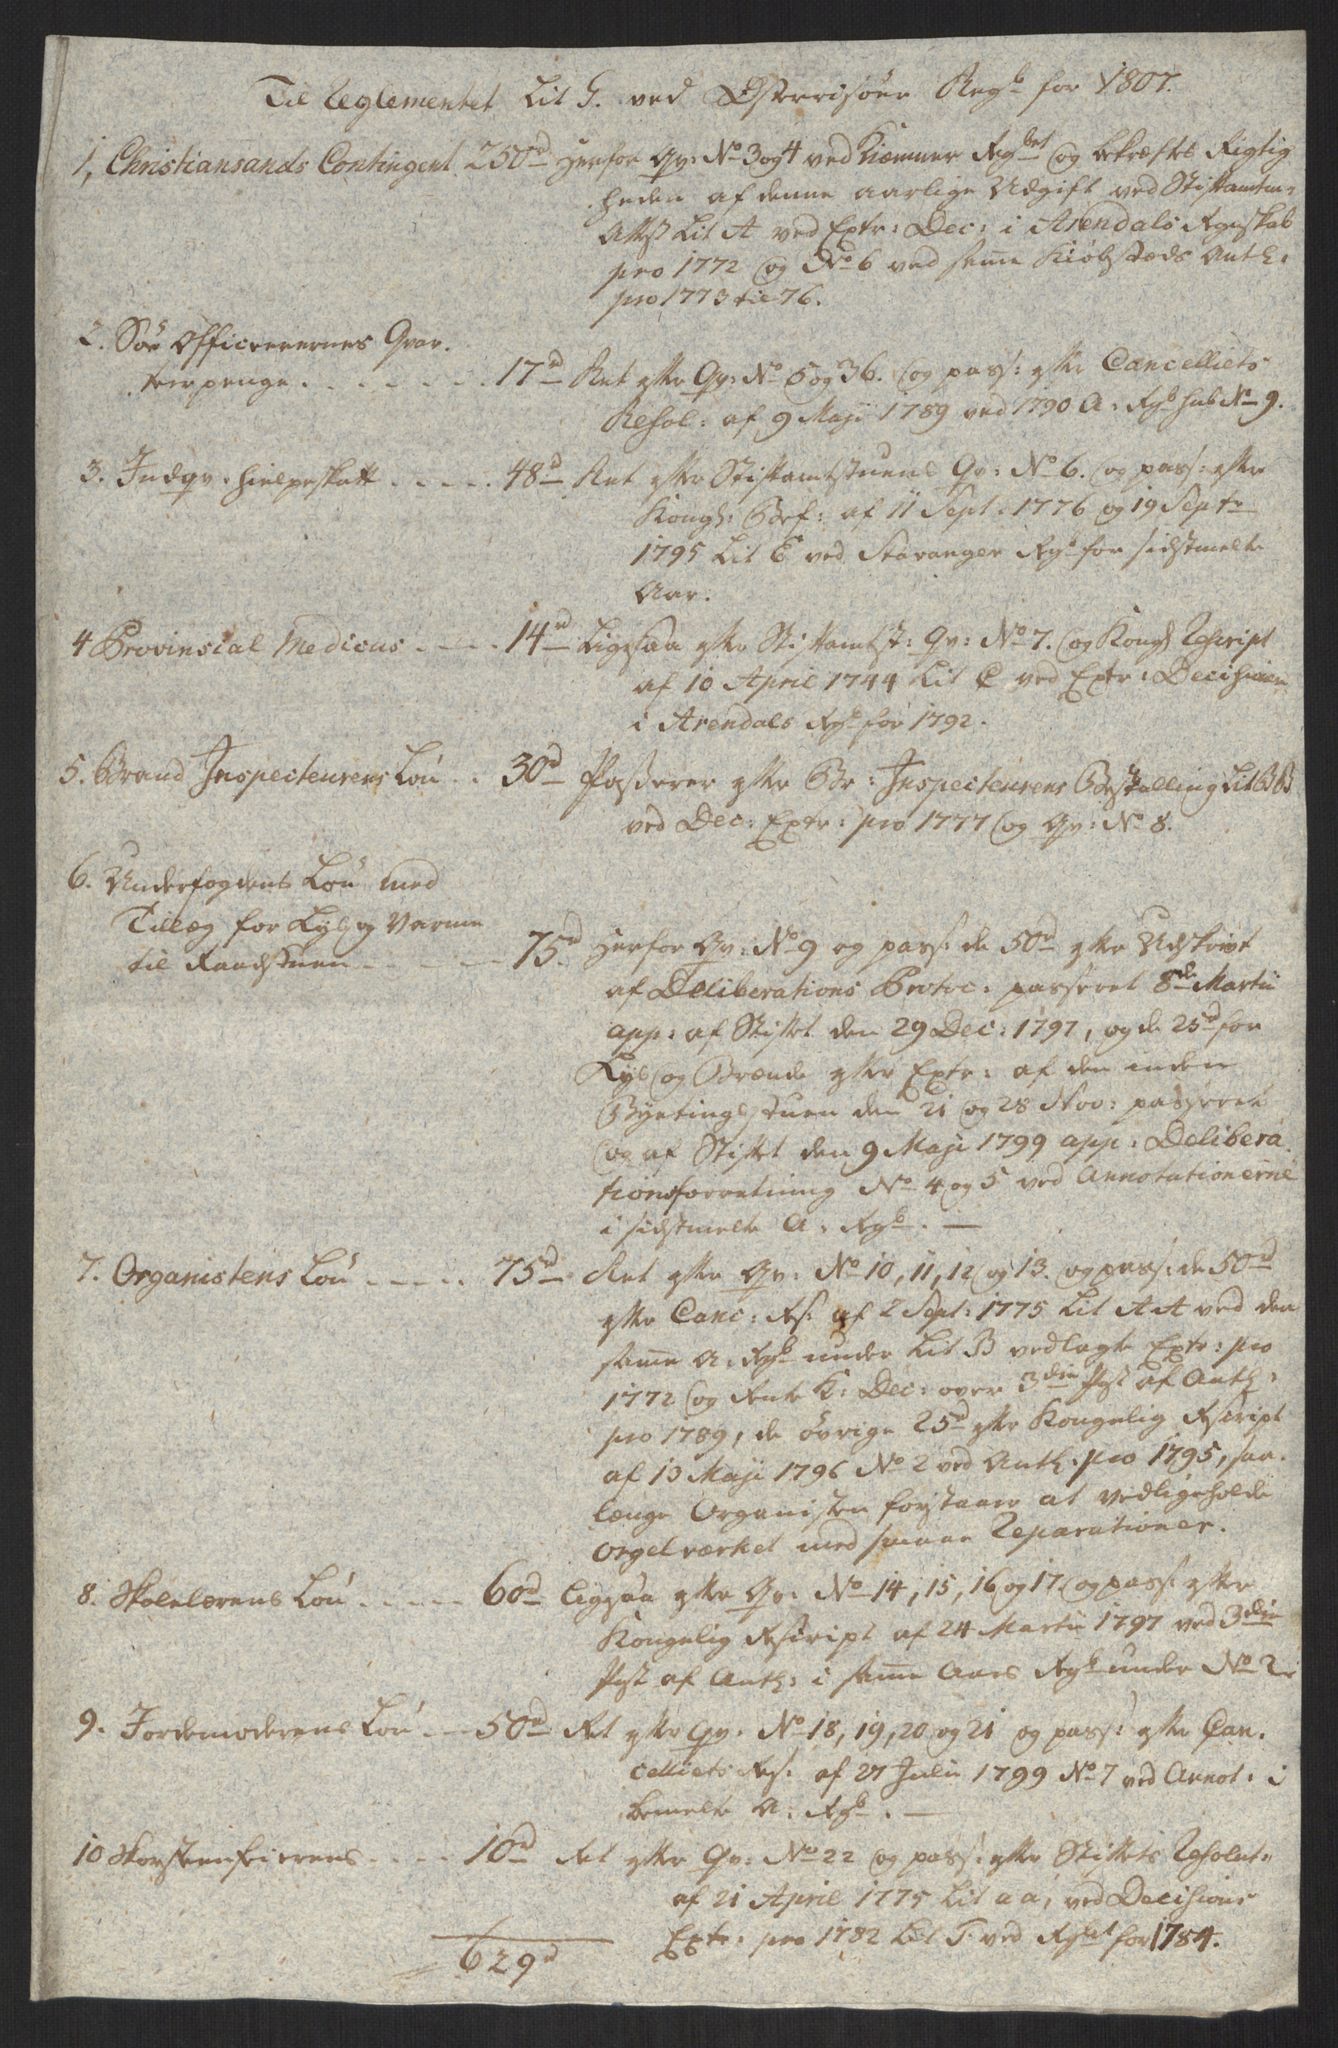 Til Reglementet Lit G. ved Østerrisöer Regsk for 1807.
1, Christiansands Contingent 250rd Herfor Qv: No 3 og 4 ved Kiæmner Regsbet og bekræftes Rigtig
heden af denne aarlige Udgift ved Stiftamtm-
Attest Lit A ved Extr: Dec: i Arendals Regnskab
pro 1772 og No 6 ved samme Kiöbstæds Antl:
pro 1773 til 76.
2. Söe Officerernes Qvar-
teerpenge . . . . . . . 17rd Ret efter Qv: No 5 og 36. og pass: efter Cancelliets
Resol: af 9 Maji 1789 ved 1790 A: Rgsk sub No 9.
3. Indqv. hielpeskatt . . . . . 48rd Ret efter Stiftamtstuens Qv: No 6. og pass: efter
Kongl: Bef: af 11 Sept: 1776 og 19 Septr
1795 Lit E ved Stavanger Rgsk for sidstmelte
Aar.
4 Provinsial Medicus . . . . 14rd Ligesaa efter Stiftamtst: Qv: No 7. og Kongl Rescript
af 10 April 1744 Lit C ved Extr: Decision
i Arendals Rgsk for 1792.
5. Brand Inspecteurens Lön . . 30rd Passerer efter Br: Inspecteurens Bestalling Lit BB
ved Dec: Extr: pro 1777 og Qv: No 8.
6. Underfogdens Lön med
Tillæg for Lys og Varme
til Raadstuen . . . . . 75rd Herfor Qv: No 9 og pass: de 50rd efter Udskrivt
af Deliberations Protoc: passeret 8de Martii
app: af Stiftet den 29 Dec: 1797, og de 25rd for
Lys og Brænde efter Extr: af den inden
Byetingstuen den 21 og 28 Nov: passerede
og af Stiftet den 9 Maji 1799 app: Delibera
tionsforretning No 4 og 5 ved Annotationerne
i sidstmelte A: Rgsk. —
7. Organistens Lön . . . . . 75rd Ret efter Qv: No 10, 11, 12 og 13. og pass: de 50rd
efter Canc: Rs: af 2 Sept: 1775 Lit AA ved den
samme A: Rgsk under Lit B vedlagte Extr: pro
1772 og Rente K: Dec: over 3die Post af Antl:
pro 1789, de övrige 25rd efter Kongelig Rescript
af 13 Maji 1796 No 2 ved Antl: pro 1795, saa-
længe Organisten forestaaer at vedligeholde
Orgelværket med smaae Reparationer.
8. Skolelærens Lön . . . . . 60rd Ligesaa efter Qv: No 14, 15, 16 og 17 og pass: efter
Kongelig Rescript af 24 Martii 1797 ved 3die
Post af Antl: i samme Aars Rgsk under No 2.
9. Jordemoderens Lön . . . 50rd Ret efter Qv: No 18, 19, 20 og 21 og pass: efter Can-
celliets Rs: af 27 Julii 1799 No 7 ved Annot: i
bemelte A: Rgsk. —
10 Skorsteenfeierens . . . . 10rd Ret efter Qv: No 22 og pass: efter Stiftets Resolut-
af 21 April 1775 Lit aa, ved Decisions
Extr: pro 1782 Lit T. ved Rgsket for 1784.
629rd